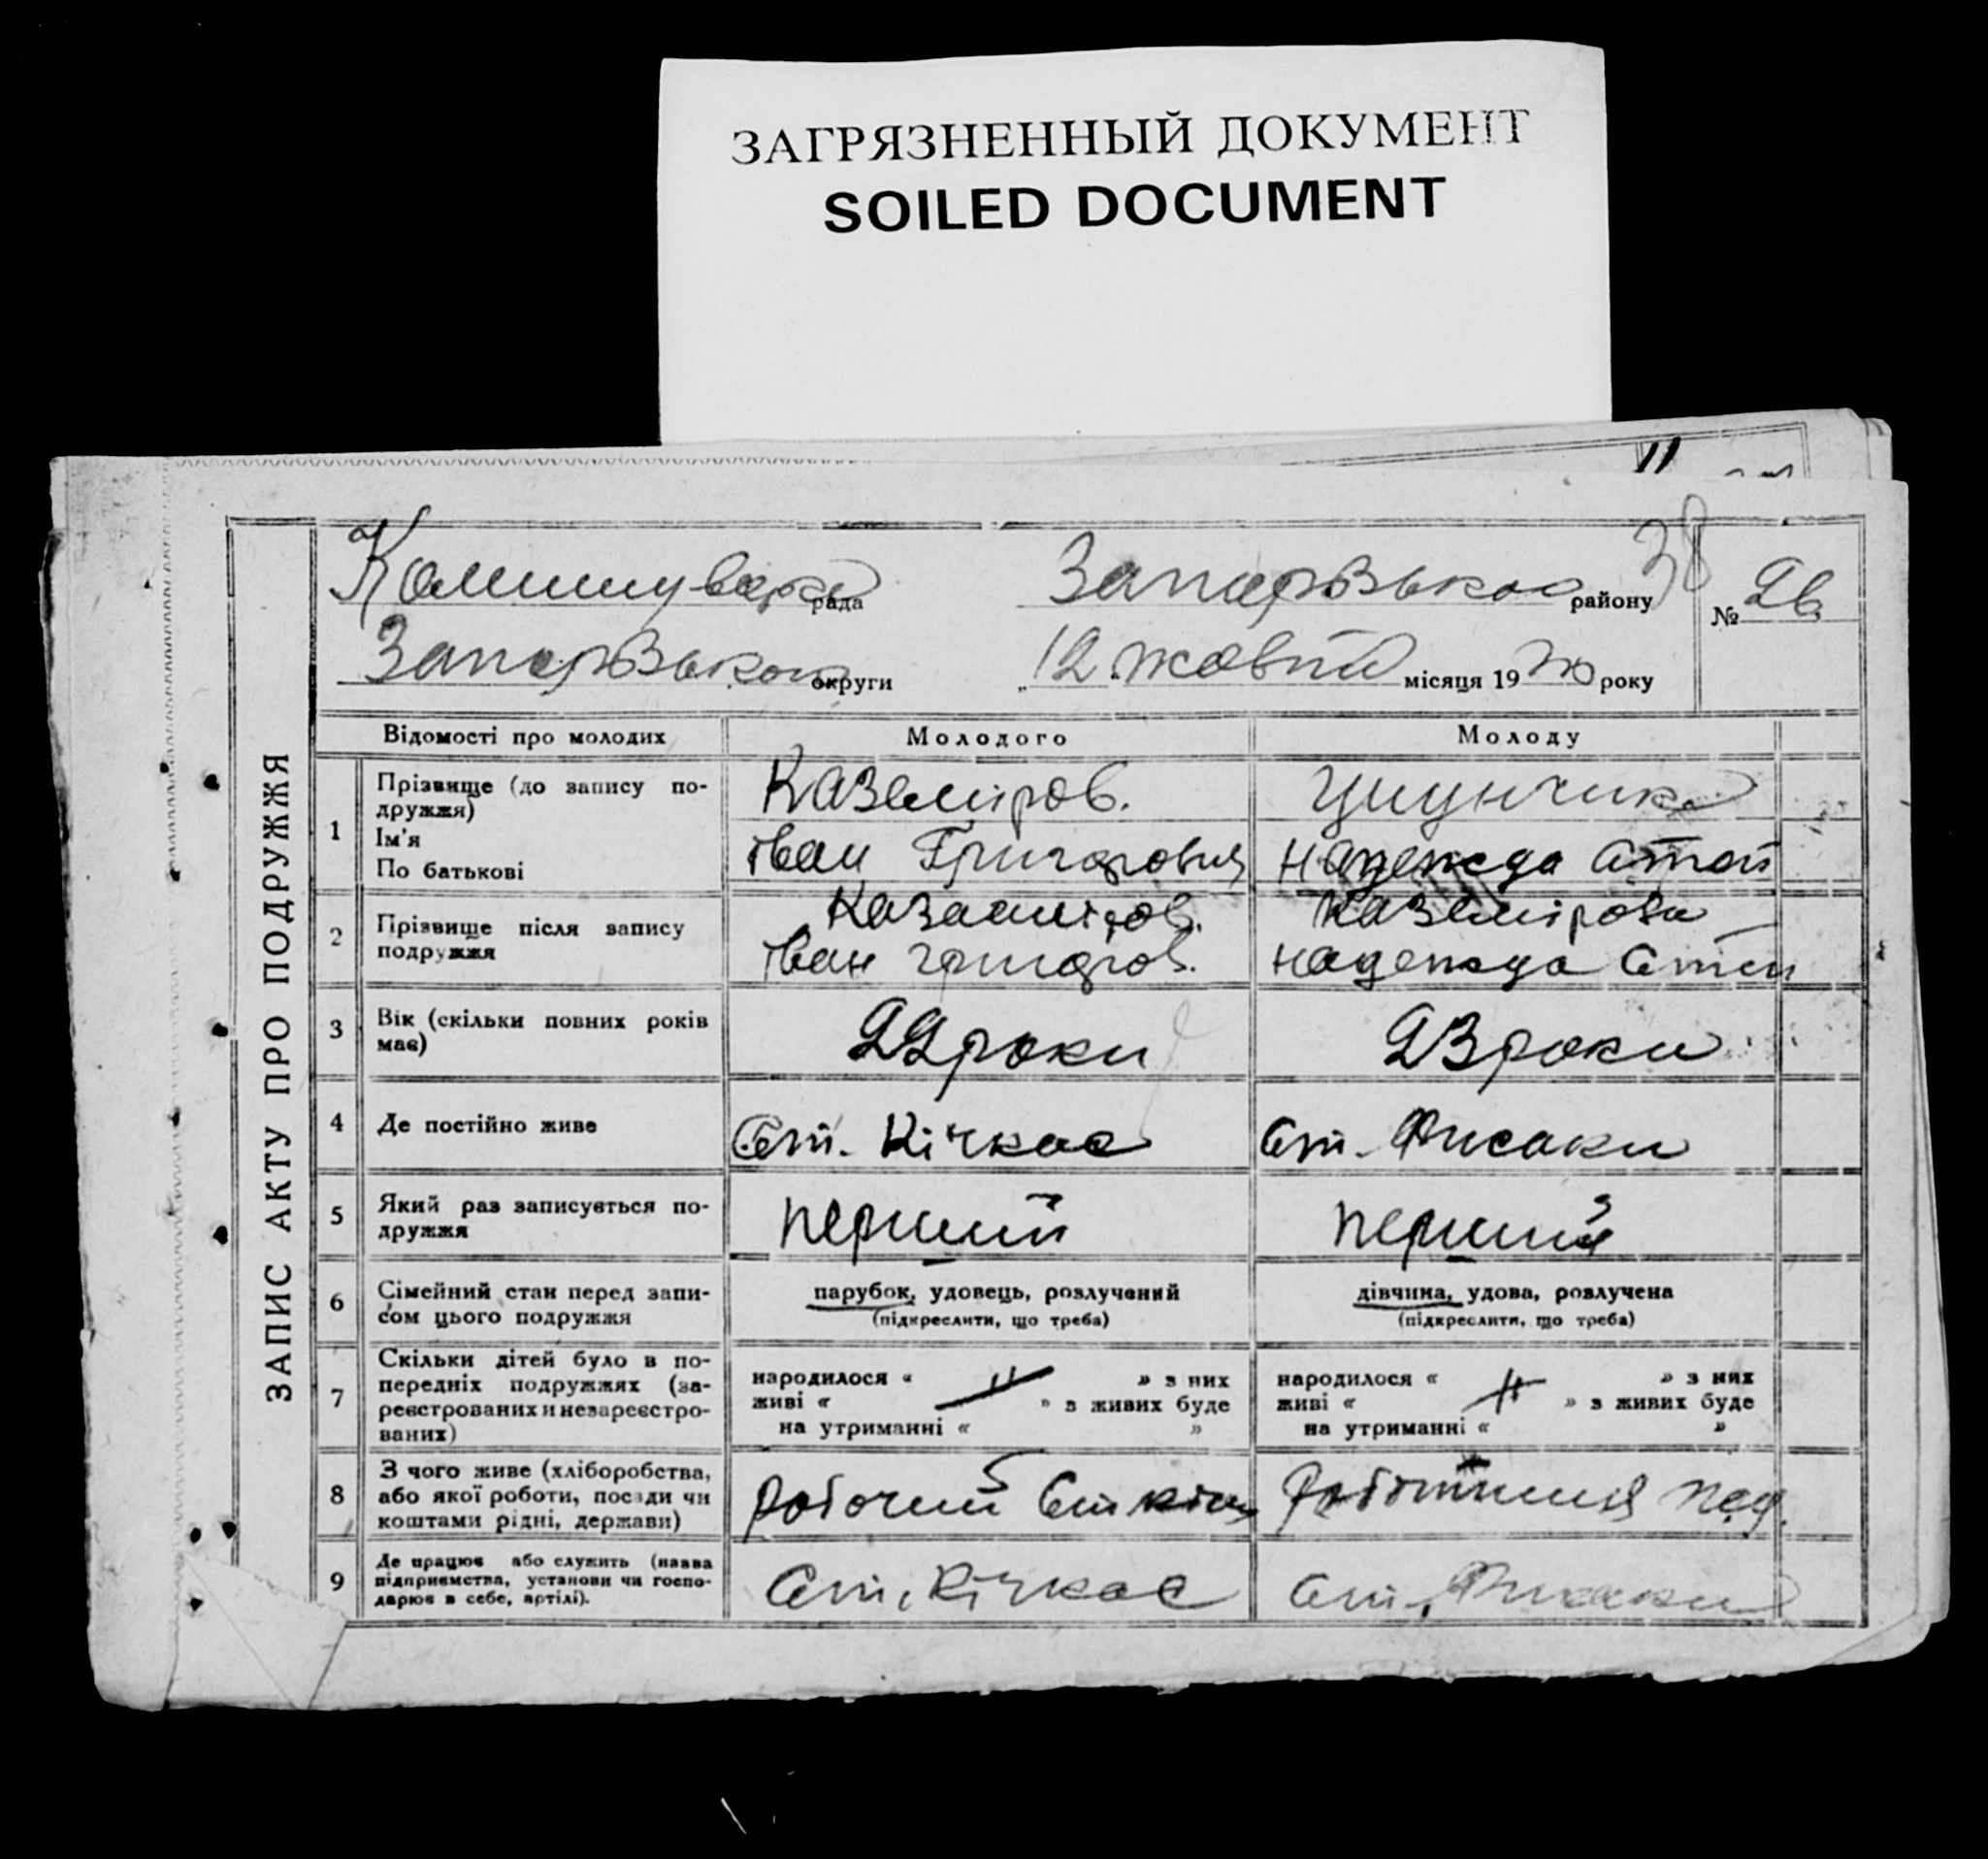 ЗАГРЯЗНЕННЫЙ ДОКУМЕНТ
SOILED DOCUMENT
ЗАПИС АКТУ ПРО ПОДРУЖЖЯ
рада
району 38
№
округи
„12 жовтн місяця 19 року
Відомості про молодих Молодого Молоду
1 Прізвище (до запису по-
дружжя)
Ім'я
По батькові
Каземіров.
Іван Григорович
Надежда
2 Прізвище після запису
подружжя
Іван григоров.
Каземірова
надежда
3 Вік (скільки повних років
має)
22 роки
23 роки
4 Де постійно живе
Ст. Кічкас
Ст.
5 Який раз записується по-
дружжя
перший
перший
6 Сімейний стан перед запи-
сом цього подружжя
парубок, удовець, розлучений
(підкреслити, що треба)
дівчина, удова, розлучена
(підкреслити, що треба)
7 Скільки дітей було в по-
передніх подружжях (за-
реєстрованих и незареєстро-
ваних)
народилося « " » з них
живі « » з живих буде
на утриманні « »
народилося « " » з них
живі « » з живих буде
на утриманні « »
8 З чого живе (хліборобства,
або якої роботи, посади чи
коштами рідні, держави)
робочий Ст
9 Де працює або служить (назва
підприємства, установи чи госпо-
дарює в себе, артілі).
Ст. Кічкас
Ст.